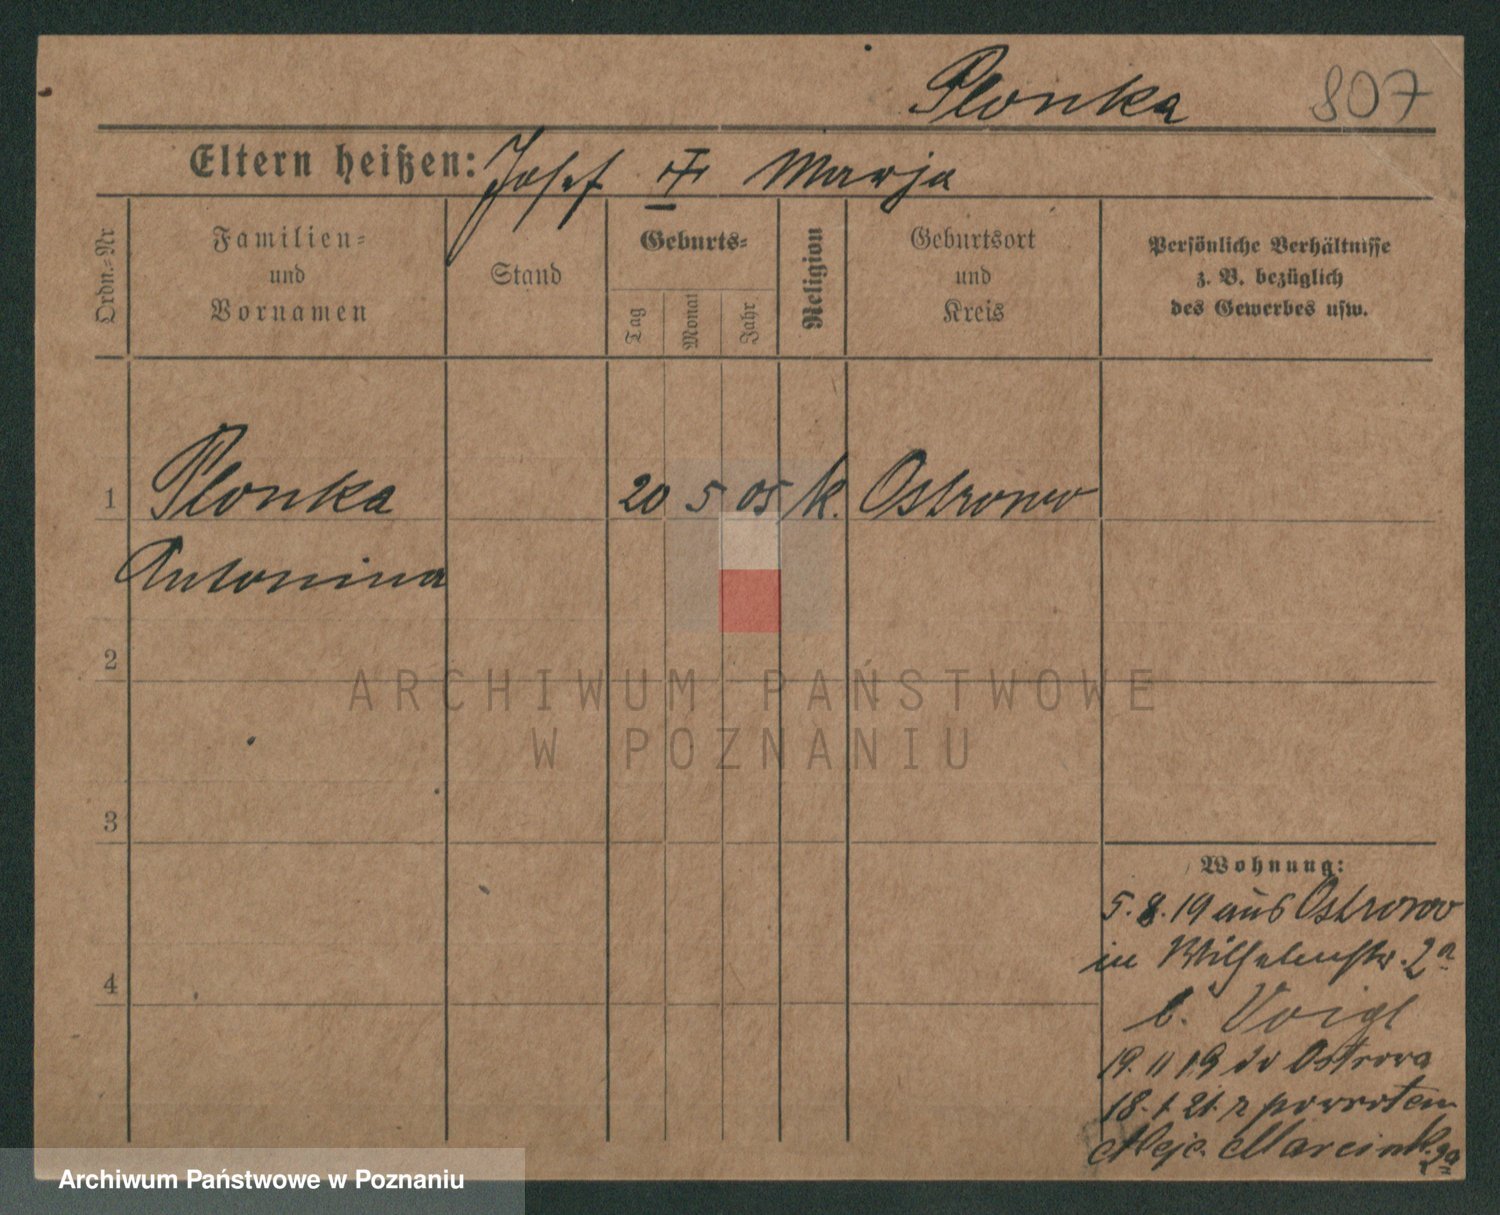 Plonka 807
Eltern heißen: Josef Marja
Ordn.-Nr
Familien-
und
Vornamen
Stand
Geburts-
Tag
Monat
Jahr
Religion
Geburtsort
und
Kreis
Persönliche Verhältnisse
z. B. bezüglich
des Gewerbes usw.
1 Plonka 20 5 05 k. Ostrowo
Antonina
2
3
4
Wohnung:
5. 8. 19 aus Ostrowo
in Wilhelmstr. 2a
b. Voigt
19. 11 19 do Ostrowa
18. 1 21. z powrotem
Aleje. Marcink. 2a
ARCHIWUM PAŃSTWOWE
W POZNANIU
Archiwum Państwowe w Poznaniu